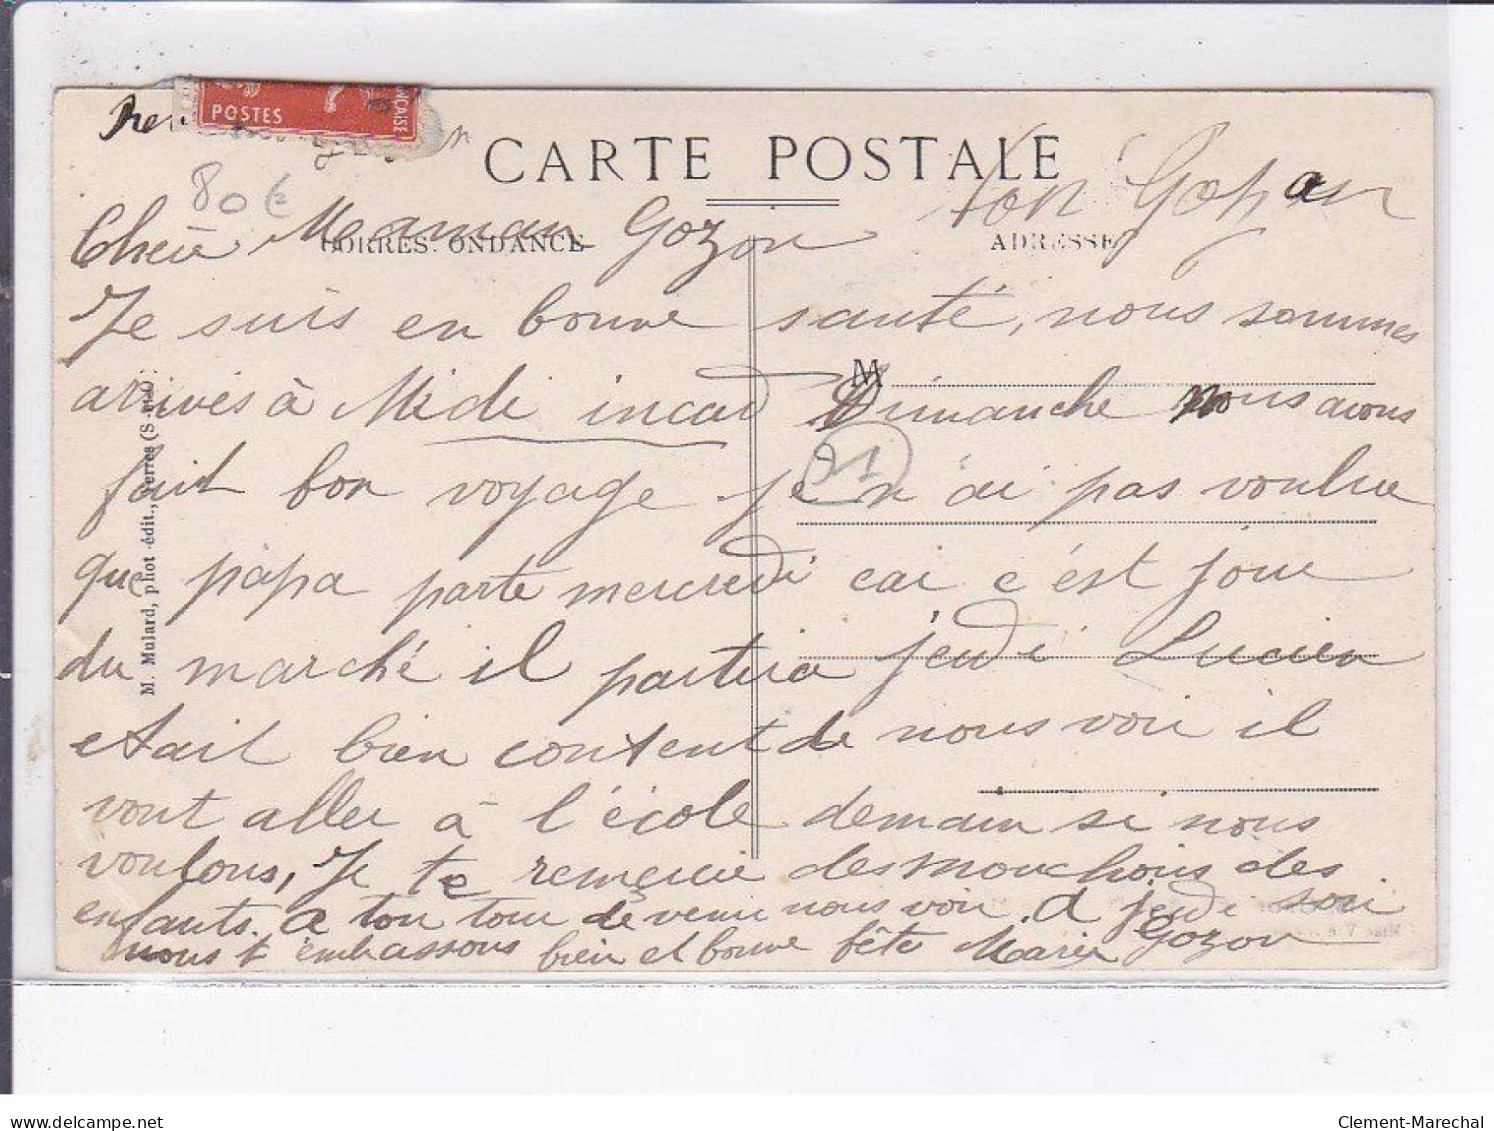 POSTES
CARTE POSTALE
80€
Chère Maman Gozon
CORRESPONDANCE
ADRESSE
Je suis en bonne santé, nous sommes
M
arrivés à Midi Dimanche nous avons
fait bon voyage je n'ai pas voulue
91
que papa parte mercredi car c'est jour
du marché il partira jeudi Lucien
etait bien content de nous voir il
vont aller à l'école demain si nous
voulons, Je te remercie des mouchoirs des
enfants. a ton tour de venir nous voir. A jeudi soir
nous t'embrassons bien et bonne fête Marie Gozon
M. Mulard, phot-édit., Yerres (S.-et-O.)
www.delcampe.net
Clement-Marechal